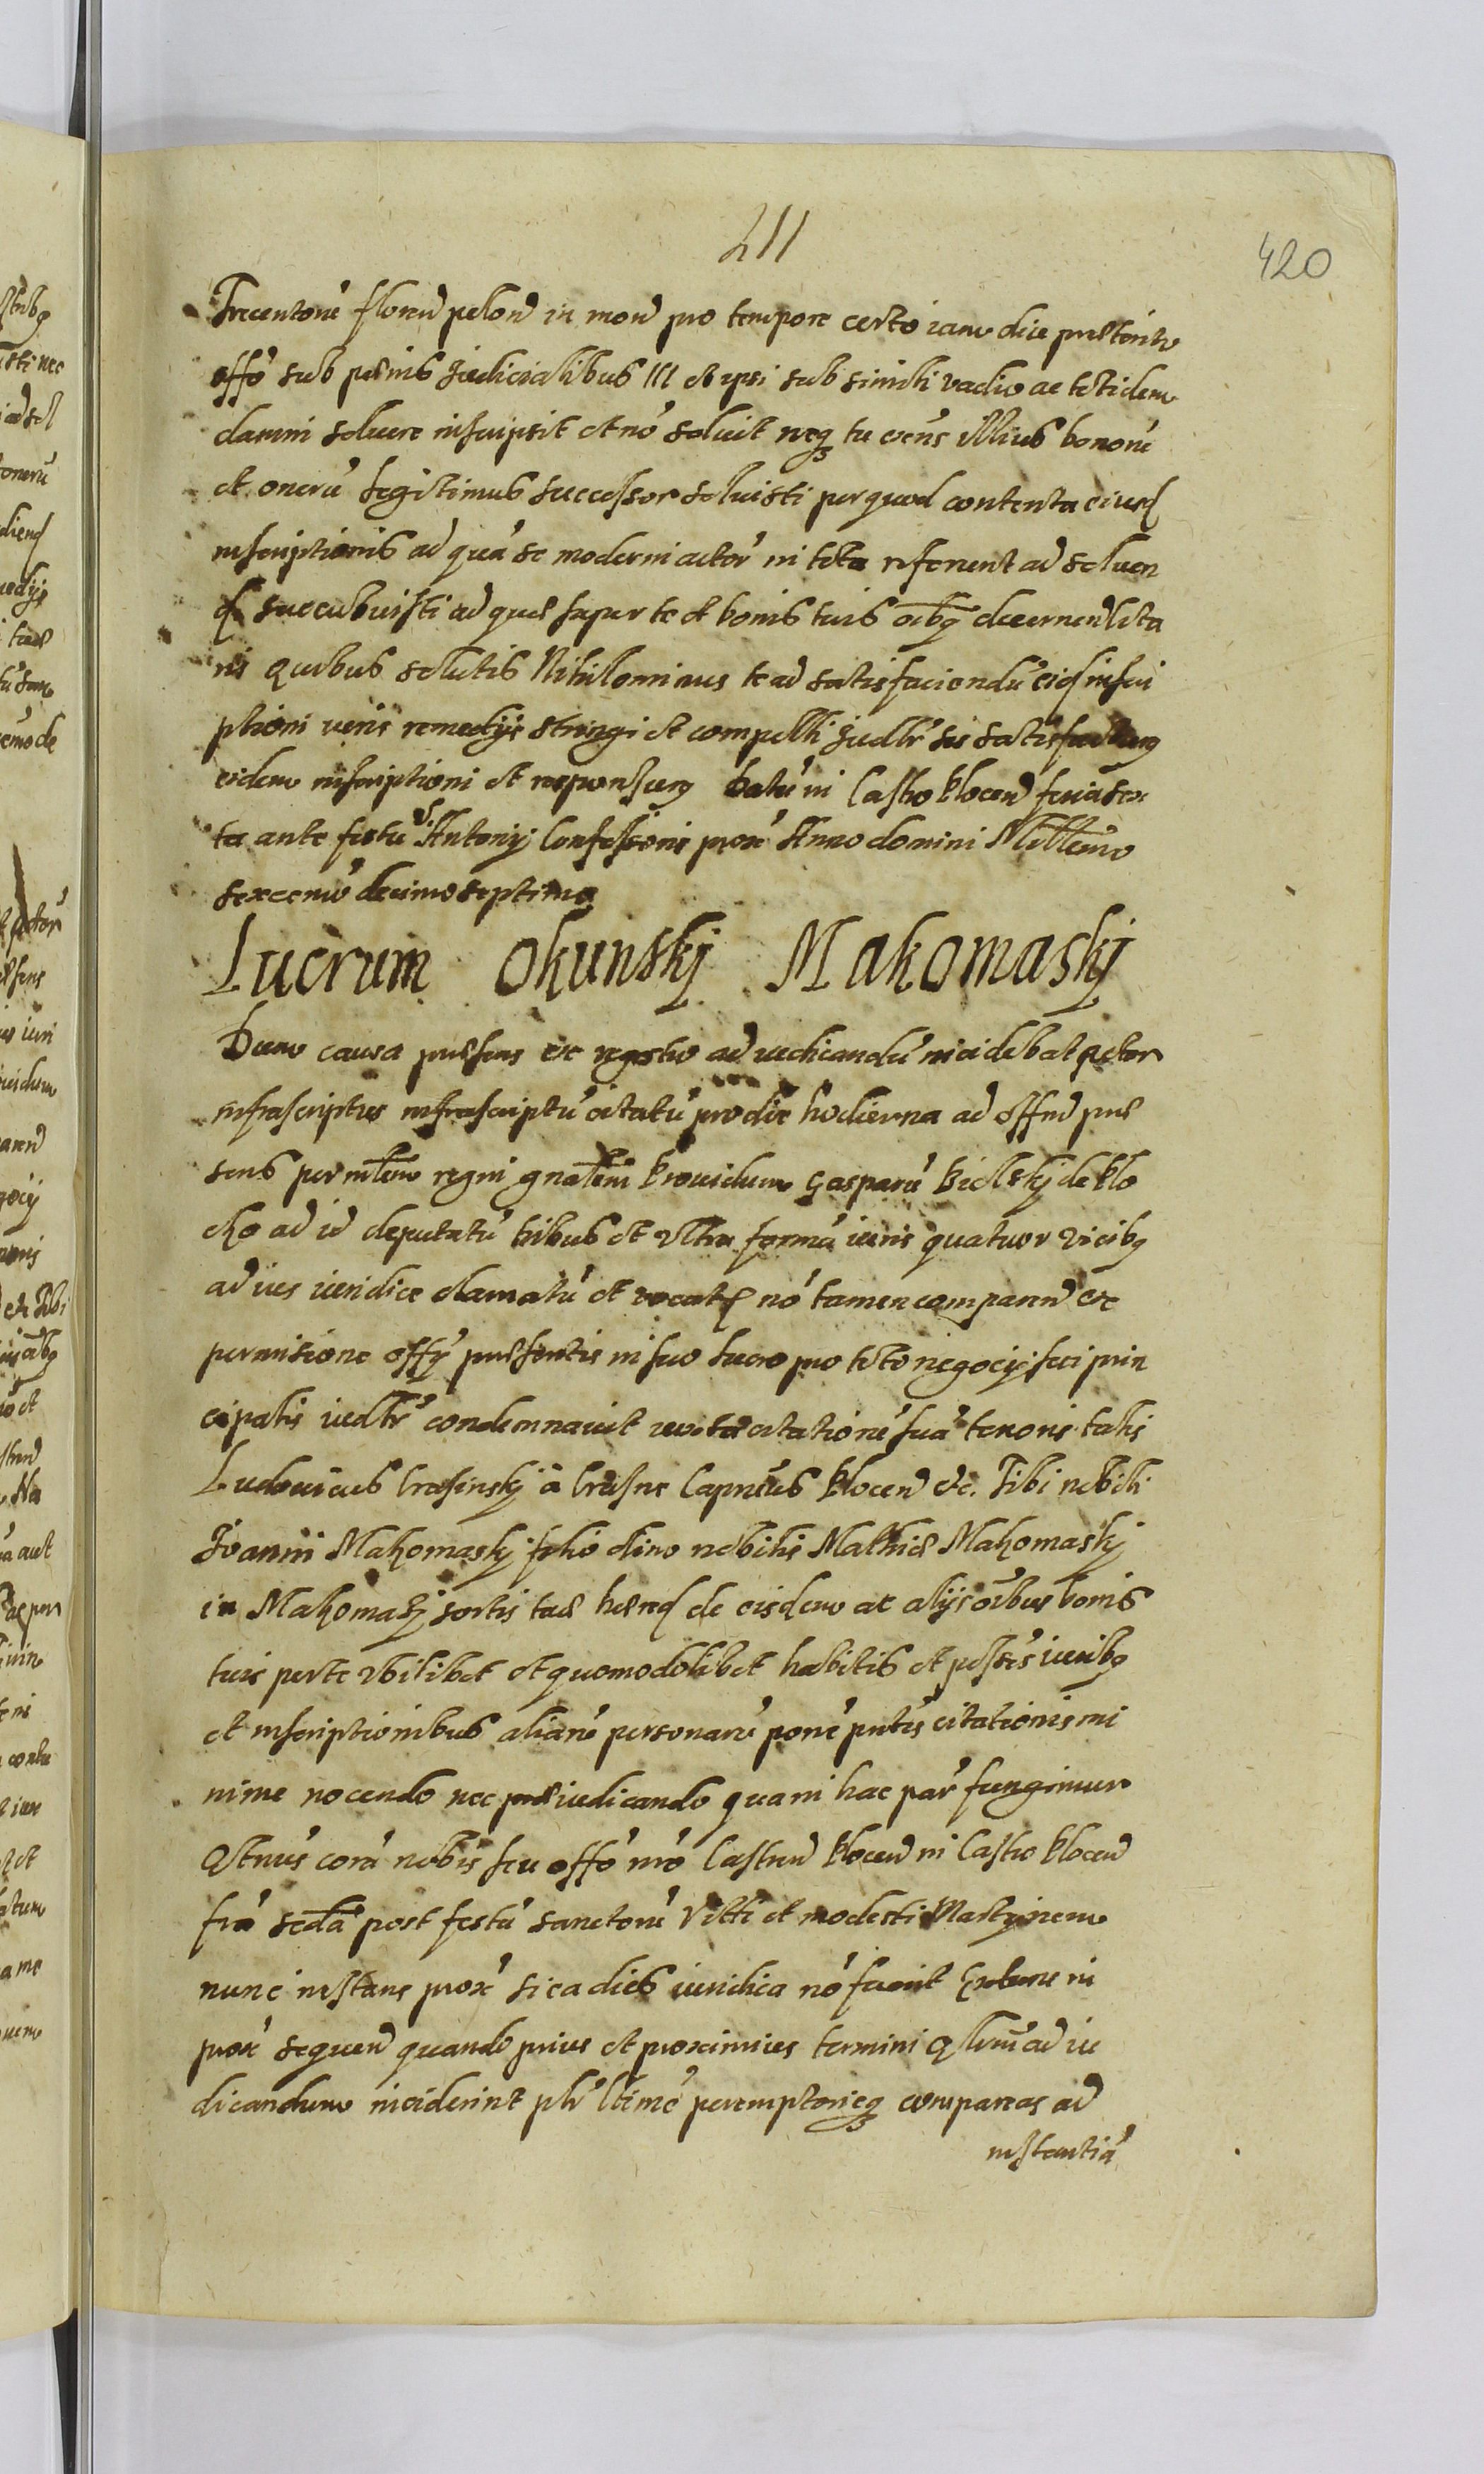 411
420
Trecentorũ florẽn polon in mon pro tempore certo iam diu præterito
offõ sub pœnis Judicialibus III et ipsi sub simili vadio ac totidem
damni soluere inscripsit et nõ soluit neq tu eiẽns illius bonorũ
et onerũ legitimus successor soluisti per quod contenta eiusd
inscriptionis ad quã se moderni actoř in toto referunt ad soluen
d succubuisti ad quæ super te et bonis tuis oĩbq decernend cita
ris quibus solutis Nihilominus te ad satisfaciendũ eid inscri
ptioni veris remedijs stringi et compelli Judlř sis satisfacturq
eidem inscriptioni et responsurq Datũ in Castro Plocen feria sex
ta ante festũ S. Antonij Confessoris prox Anno domini Millemo
sexcenmo decimoseptimo
Lucrum Okunskj Makomaskj
Dum causa præsens ex regestro ad iudicandũ incidebat actor
infrascriptus infrascriptũ citatũ pro die hodierna ad offnd præ
sens per mltem regni gnalem Prouidum Gasparũ Bielskj de Plo
cko ad id deputatũ tribus et vltra formã iuris quatuor vicibq
ad ius iuridice clamatũ et vocatũ nõ tamen comparen ex
permissione offÿ præsentis in suo lucro pro toto negocij sui prin
cipalis iudlř condemnauit iuxta citationẽ suã tenoris talis
Ludouicus Crasinskj à Crasne Capneus Plocen etc. Tibi nobili
Joanni Makomaskj filio olim nobilis Mathiæ Makomaskj
in Makomazj sortis tuæ hæred de eisdem ac alijs oĩbus bonis
tuis per te vbilibet et quomodolibet habitis et posses iuribq
et inscriptionibus aliarũ personarũ ponẽ pntis citationis mi
nime nocendo nec præiudicando qua in hac par fungimur
Qtnus corã nobis seu offõ nrõ Castren Plocen in Castro Plocen
friã scdã post festũ sanctorũ Vitti et modesti Martyrum
nunc instans prox si ea dies iuridica nõ fuerit Extunc in
prox sequen quando prius et proximius termini Qlrum ad iu
dicandum inciderint plř ltimẽ peremptorieq compareas ad
instantiã